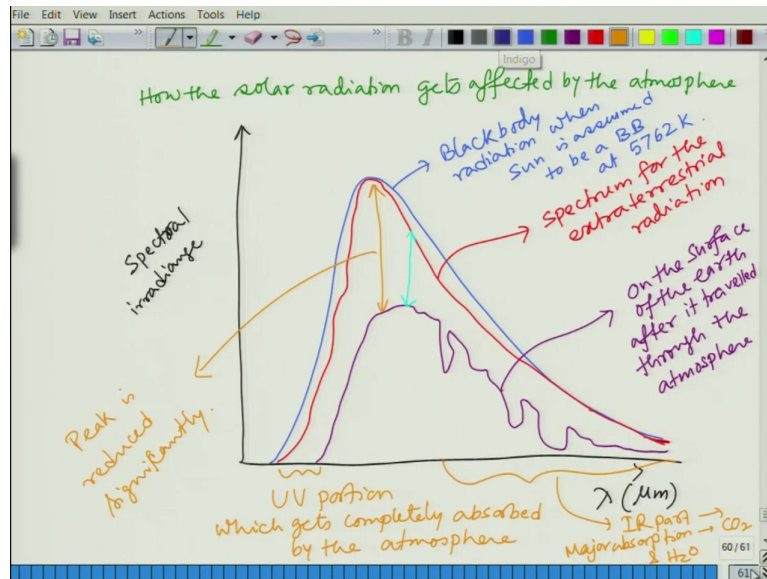 File Edit View Insert Actions Tools Help
B I
Indigo
How the solar radiation gets affected by the atmosphere
Blackbody
radiation when
Sun is assumed
to be a BB
at 5762 K.
Spectrum for the
extraterrestrial
radiation
Spectral
irradiance
on the surface
of the earth
after it travelled
through the
atmosphere
Peak is
reduced
significantly.
λ (μm)
UV portion
which gets completely absorbed
by the atmosphere
IR part → CO2
Major absorption → & H2O
60/61
61